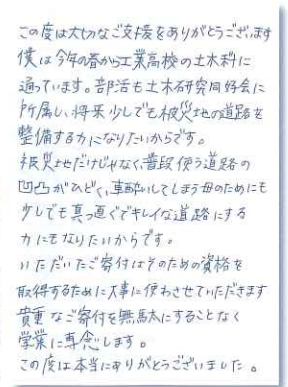 この度は大切なご支援をありがとうございます
僕は今年の春から工業高校の土木科に
通っています。部活も土木研究同好会に
所属し、将来少しでも被災地の道路を
整備する力になりたいからです。
被災地だけじゃなく、普段使う道路の
凹凸がひどく、車酔いしてしまう母のためにも
少しでも真っ直ぐでキレイな道路にする
力にもなりたいからです。
いただいたご寄付はそのための資格を
取得するために大事に使わさせていただきます
貴重なご寄付を無駄にすることなく
学業に専念します。
この度は本当にありがとうございました。